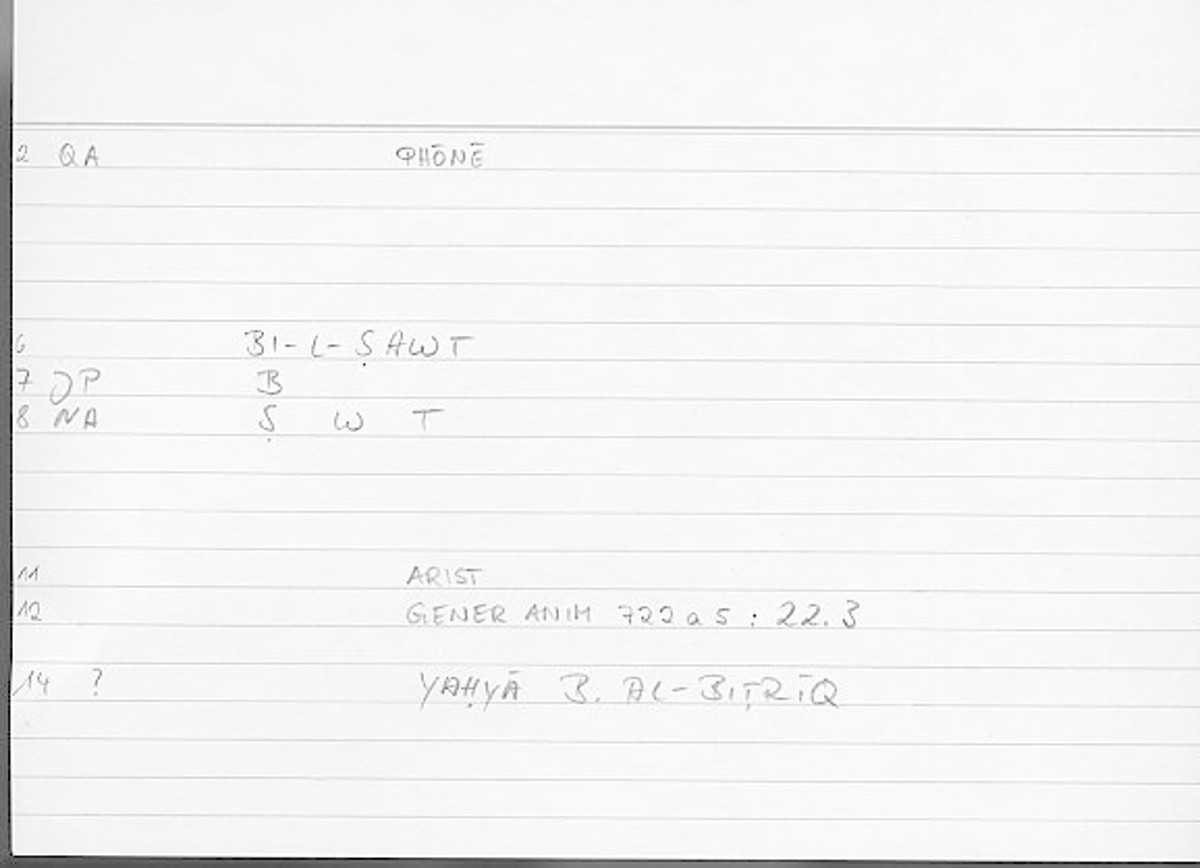 2 QA PHŌNĒ
6 BI-L-ṢAWT
7 JP B
8 NA Ṣ W T
11 ARIST
12 GENER ANIM 722 a 5 : 22.3
14 ? YAḤYĀ B. AL-BIṬRĪQ